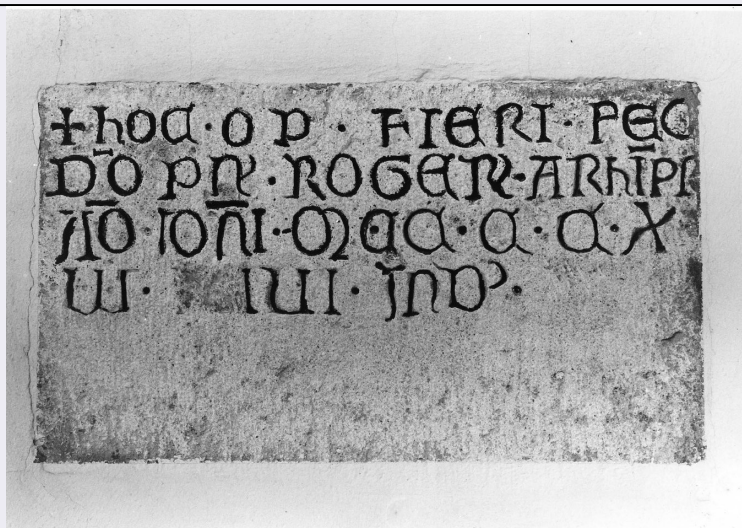 + hOC · O P · FIERI · FEC
DO PN · ROGER · ARhIPI
AO IONI · M · CC · C · C · X
III · IIII · IND ·